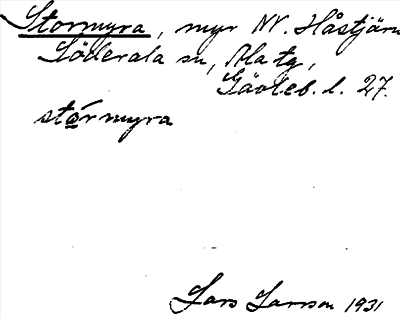 Stormyra, myr NV. Håstjärn
Söderala sn, Ala tg,
Gävleb. l. 27.
stórmyra
Lars Larsson 1931